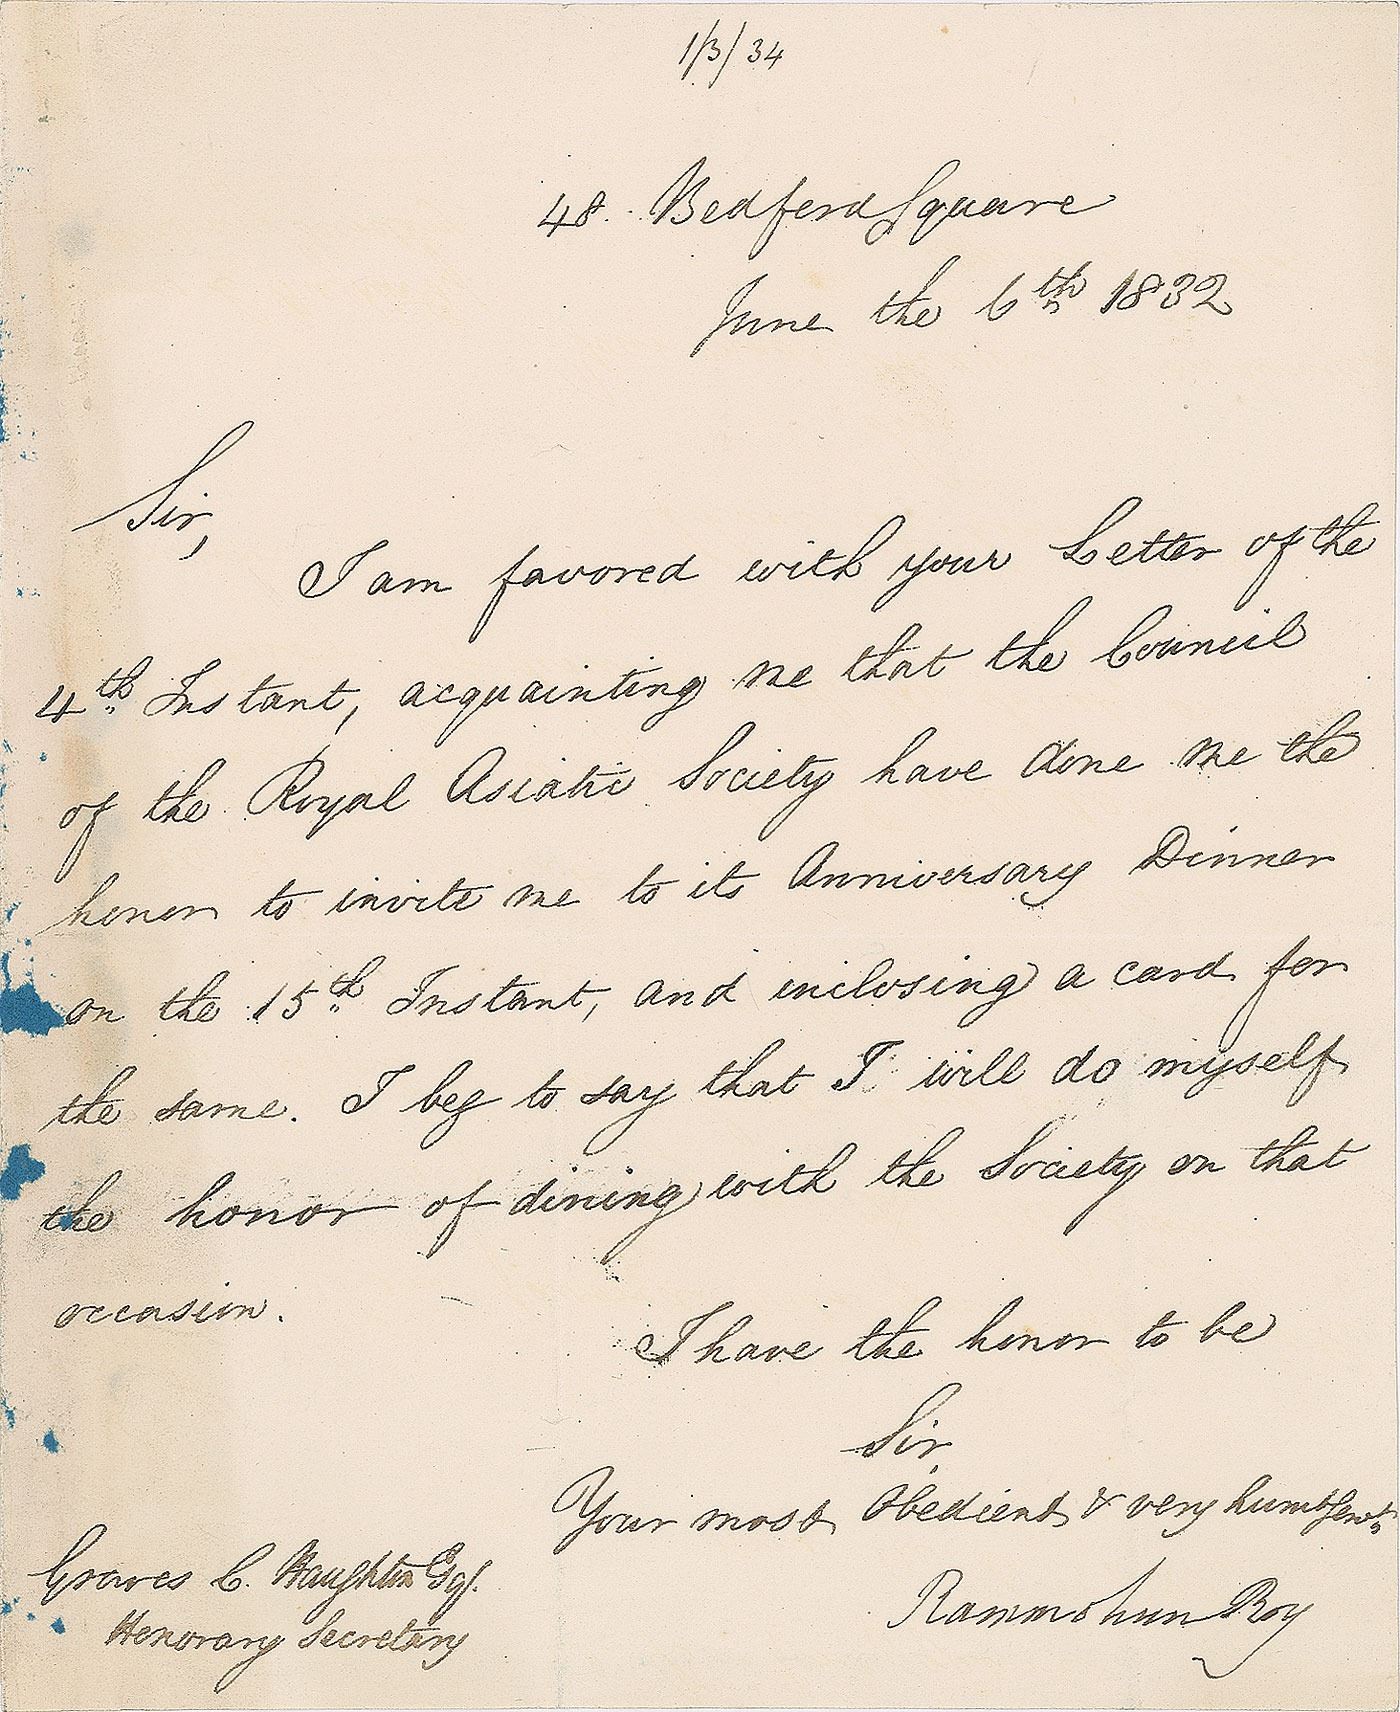 1/3/34
48. Bedford Square
June the 6th 1832
Sir,
I am favored with your Letter of the
4th Instant, acquainting me that the Council
of the Royal Asiatic Society have done me the
honor to invite me to its Anniversary Dinner
on the 15th Instant, and inclosing a card for
the same. I beg to say that I will do myself
the honor of dining with the Society on that
occasion.
I have the honor to be
Sir,
Your most Obedient & very humb Servt
Rammohun Roy
Graves C. Haughton Esqr.
Honorary Secretary